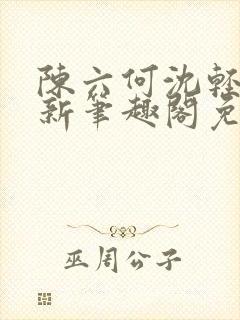 陳六何沈輕
新筆趣閣免
巫周公子